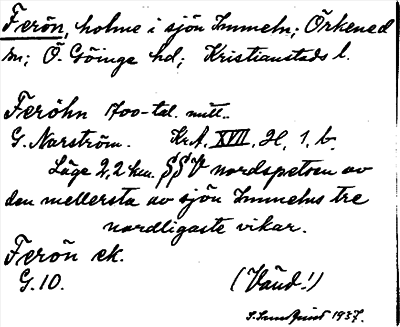 Ferön, holme i sjön Immeln; Örkened
sn; Ö. Göinge hd; Kristianstads l.
Feröhn 1700-tal. mitt.
G. Narström. KrA. XVII, H, 1, b.
Läge 2,2 km. SSV nordspetsen av
den mellersta av sjön Immelns tre
nordligaste vikar.
Ferön ek.
G. 10. (Vänd!)
1937.